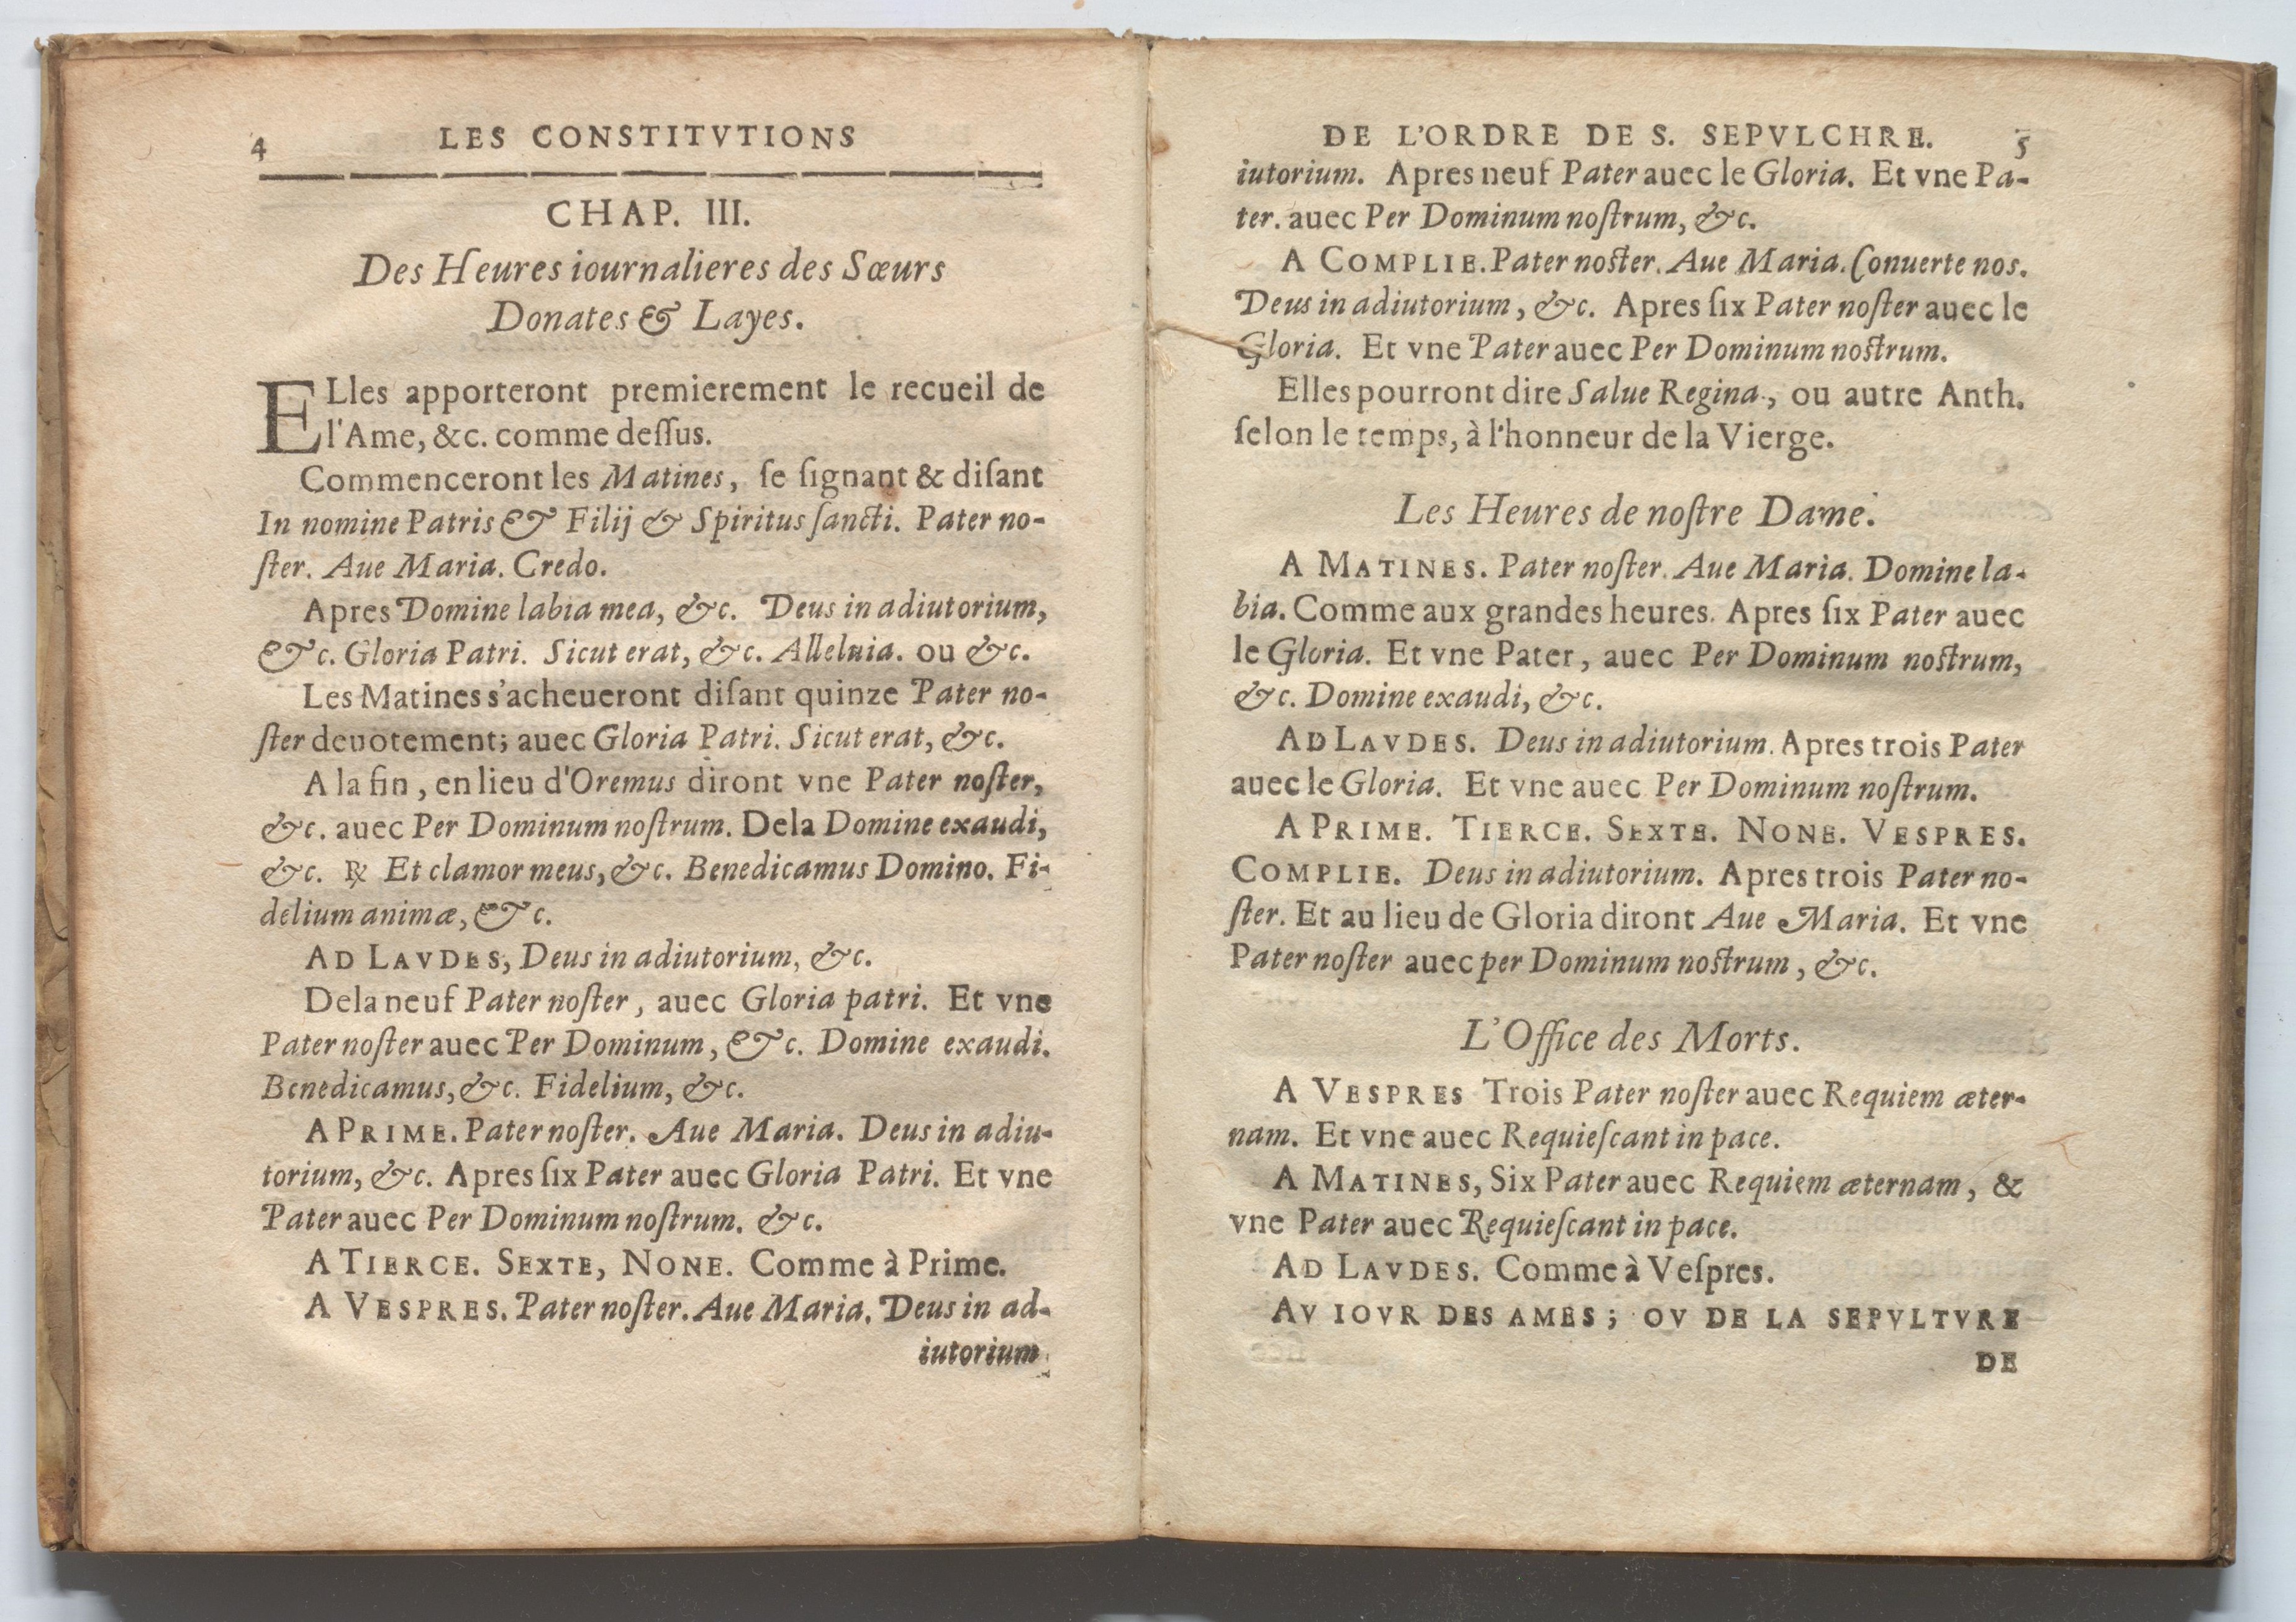 4 LES CONSTITVTIONS
CHAP. III.
Des Heures iournalieres des Sœurs
Donates & Layes.
ELles apporteront premierement le recueil de
l'Ame, &c. comme deſſus.
Commenceront les Matines, ſe ſignant & diſant
In nomine Patris & Filij & Spiritus ſancti. Pater no-
ſter. Aue Maria. Credo.
Apres Domine labia mea, &c. Deus in adiutorium,
&c. Gloria Patri. Sicut erat, &c. Alleluia. ou &c.
Les Matines s'acheueront diſant quinze Pater no-
ſter deuotement; auec Gloria Patri. Sicut erat, &c.
A la fin, en lieu d'Oremus diront vne Pater noſter,
&c. auec Per Dominum noſtrum. Dela Domine exaudi,
&c. ℟ Et clamor meus, &c. Benedicamus Domino. Fi-
delium animæ, &c.
AD LAVDES, Deus in adiutorium, &c.
Dela neuf Pater noſter, auec Gloria patri. Et vne
Pater noſter auec Per Dominum, &c. Domine exaudi.
Benedicamus, &c. Fidelium, &c.
A PRIME. Pater noſter. Aue Maria. Deus in adiu-
torium, &c. Apres ſix Pater auec Gloria Patri. Et vne
Pater auec Per Dominum noſtrum. &c.
A TIERCE. SEXTE, NONE. Comme à Prime.
A VESPRES. Pater noſter. Aue Maria. Deus in ad-
iutorium
DE L'ORDRE DE S. SEPVLCHRE. 5
iutorium. Apres neuf Pater auec le Gloria. Et vne Pa-
ter. auec Per Dominum noſtrum, &c.
A COMPLIE. Pater noſter. Aue Maria. Conuerte nos.
Deus in adiutorium, &c. Apres ſix Pater noſter auec le
Gloria. Et vne Pater auec Per Dominum noſtrum.
Elles pourront dire Salue Regina, ou autre Anth.
ſelon le temps, à l'honneur de la Vierge.
Les Heures de noſtre Dame.
A MATINES. Pater noſter. Aue Maria. Domine la-
bia. Comme aux grandes heures. Apres ſix Pater auec
le Gloria. Et vne Pater, auec Per Dominum noſtrum,
&c. Domine exaudi, &c.
AD LAVDES. Deus in adiutorium. Apres trois Pater
auec le Gloria. Et vne auec Per Dominum noſtrum.
A PRIME. TIERCE. SEXTE. NONE. VESPRES.
COMPLIE. Deus in adiutorium. Apres trois Pater no-
ſter. Et au lieu de Gloria diront Aue Maria. Et vne
Pater noſter auec per Dominum noſtrum, &c.
L'Office des Morts.
A VESPRES Trois Pater noſter auec Requiem æter-
nam. Et vne auec Requieſcant in pace.
A MATINES, Six Pater auec Requiem æternam, &
vne Pater auec Requieſcant in pace.
AD LAVDES. Comme à Veſpres.
AV IOVR DES AMES; OV DE LA SEPVLTVRE
DE